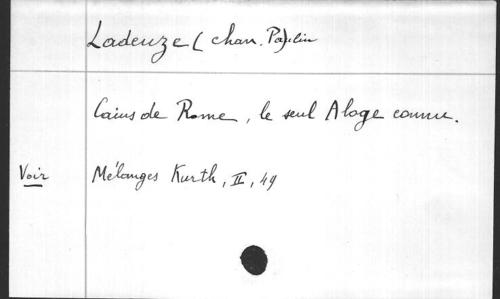 Ladeuze (chan. Paulin)
Caius de Rome, le seul Aloge connu.
Voir Mélanges Kurth, II, 49